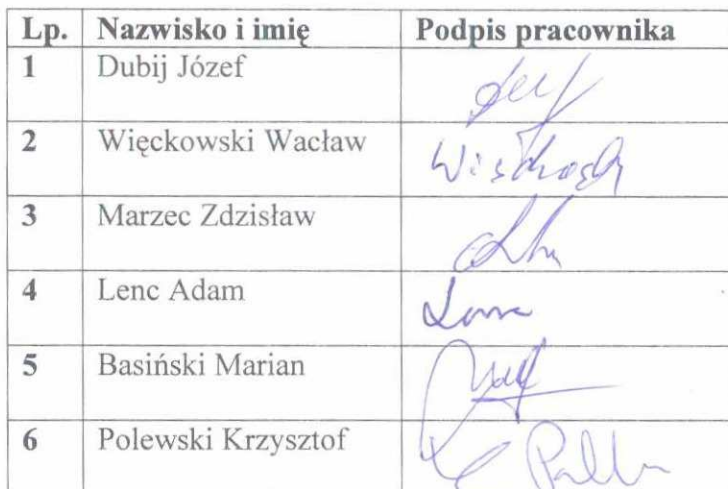 Lp. Nazwisko i imię Podpis pracownika
1 Dubij Józef
2 Więckowski Wacław
3 Marzec Zdzisław
4 Lenc Adam
5 Basiński Marian
6 Polewski Krzysztof